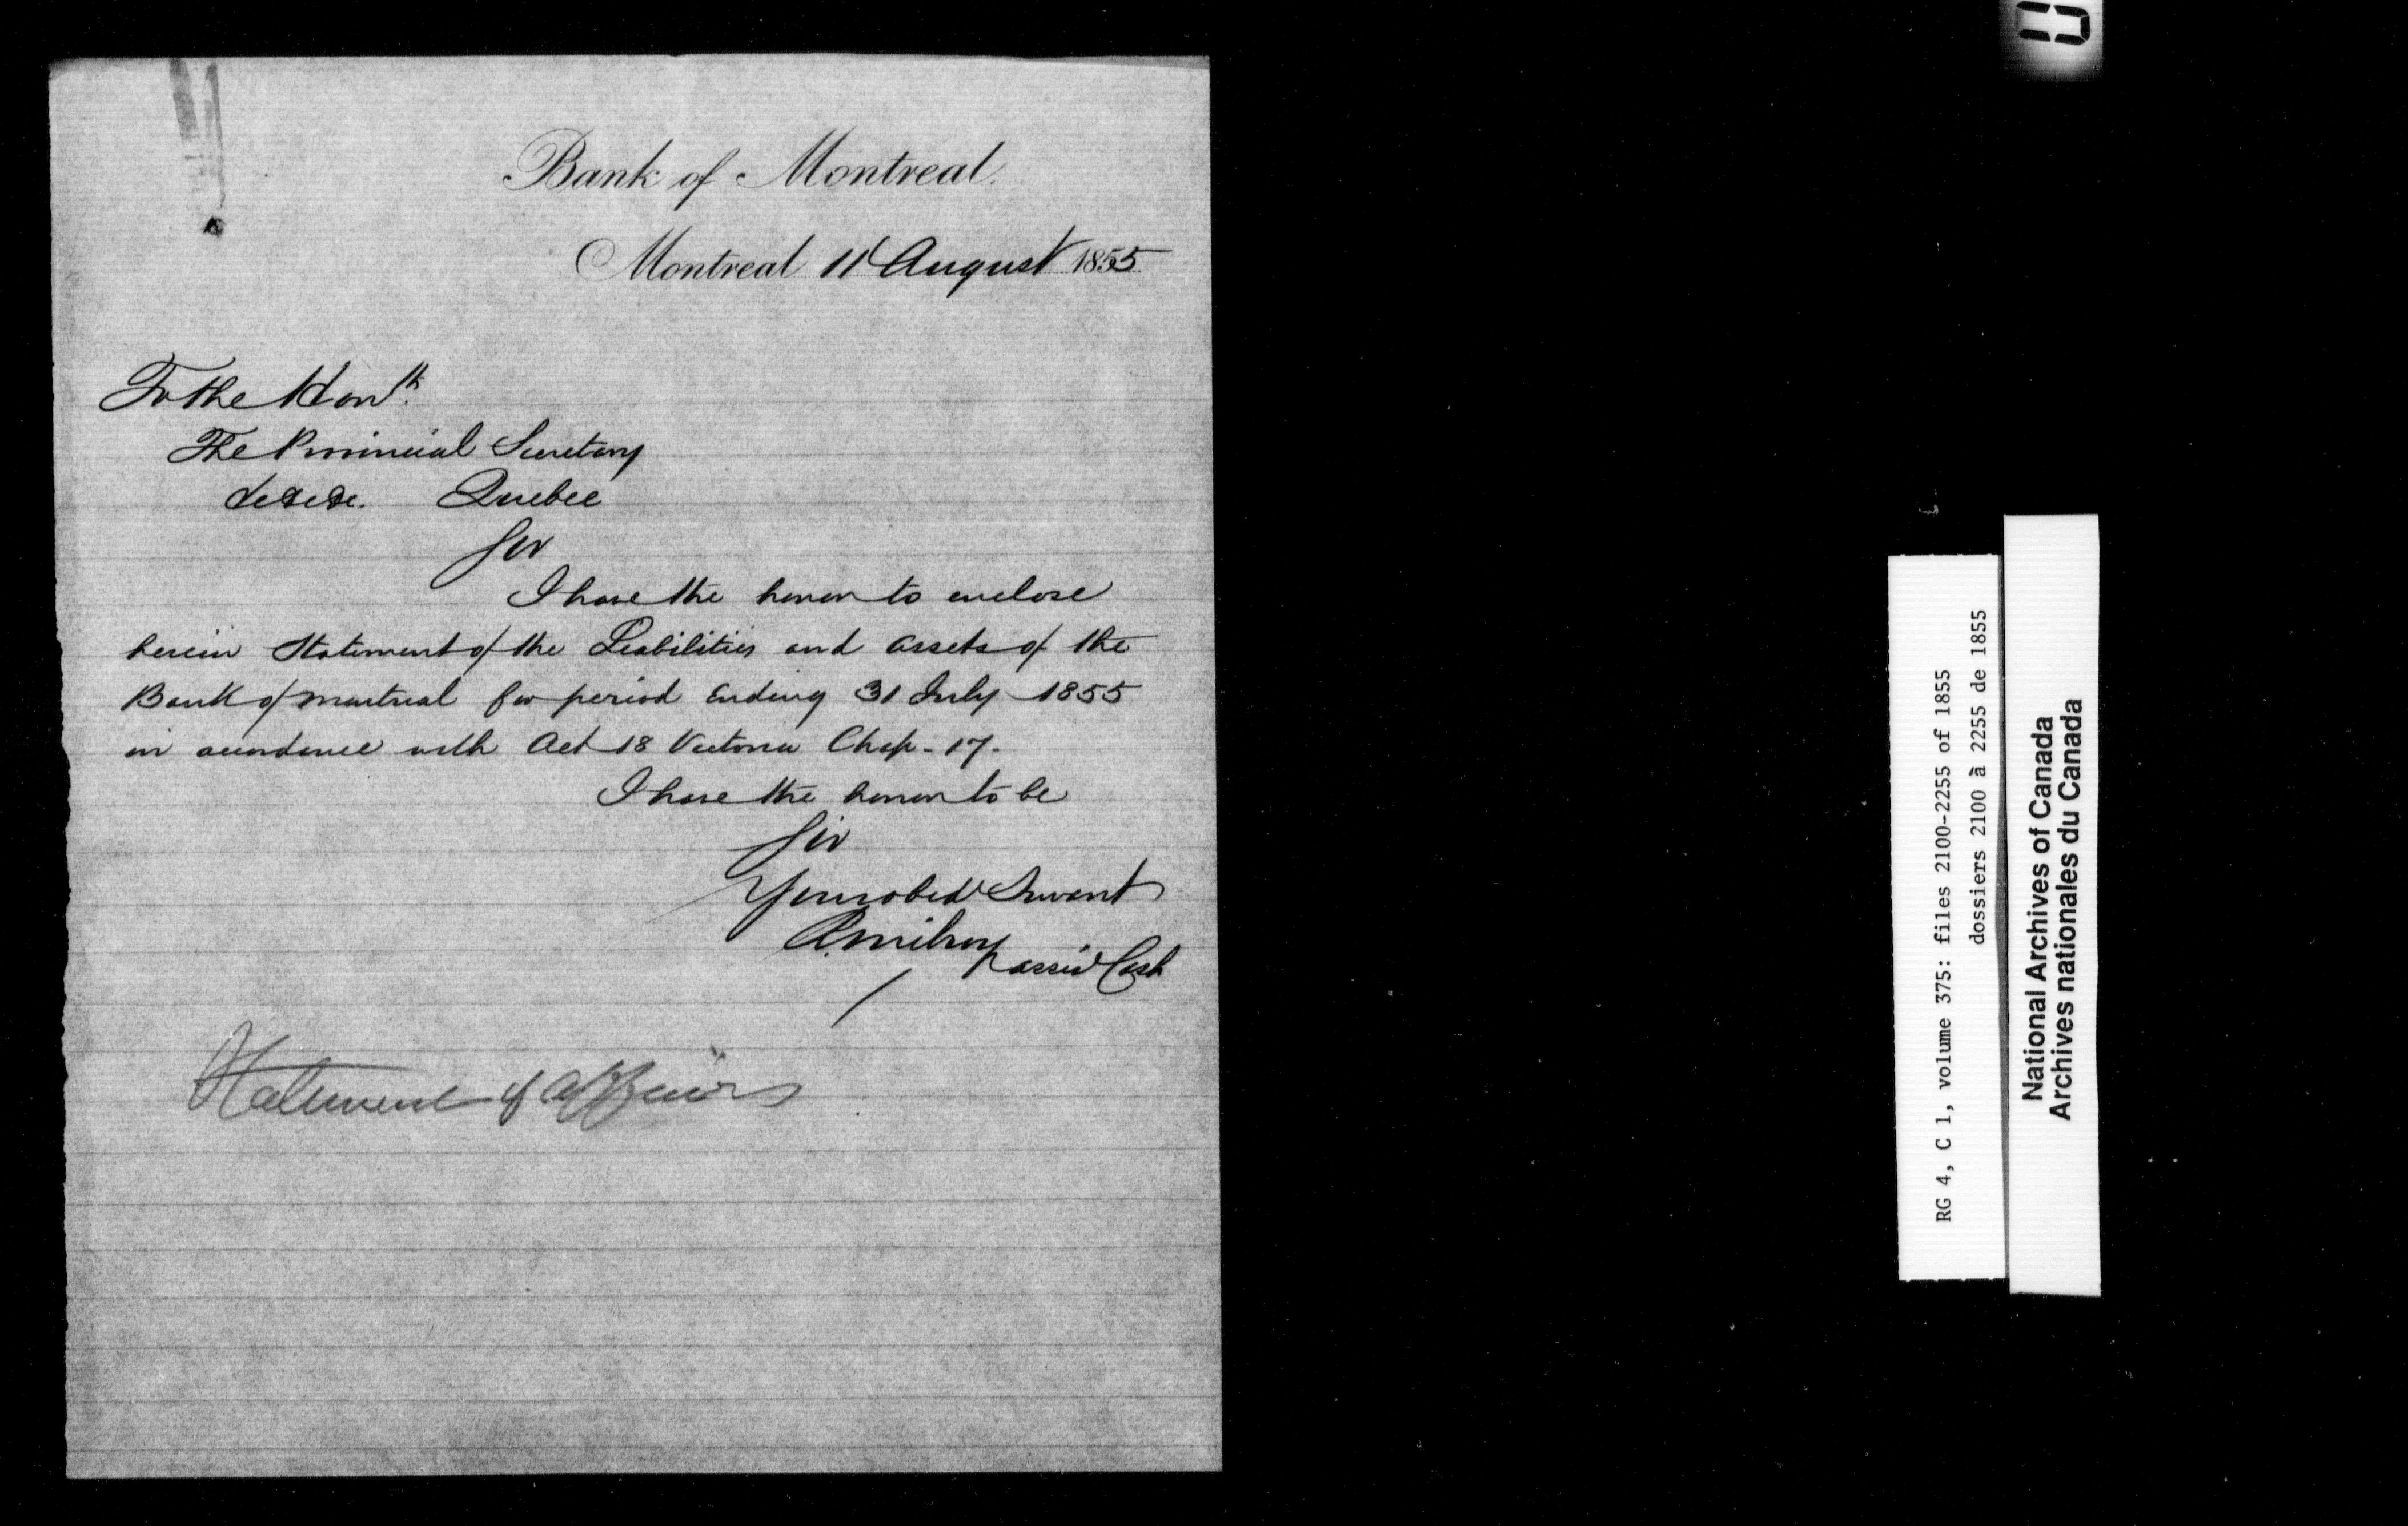 Bank of Montreal.
Montreal 11 August 1855
To the Honble.
The Provincial Secretary
&c &c &c. Quebec
Sir
I have the honor to enclose
herein Statement of the Liabilities and assets of the
Bank of Montreal for period Ending 31 July 1855
in accordance with Act 18 Victoria Chap - 17 -
I have the honor to be
Sir
Your obedt Servant
assist Cash
Statement of affairs
RG 4, C 1, volume 375: files 2100-2255 of 1855
dossiers 2100 à 2255 de 1855
National Archives of Canada
Archives nationales du Canada